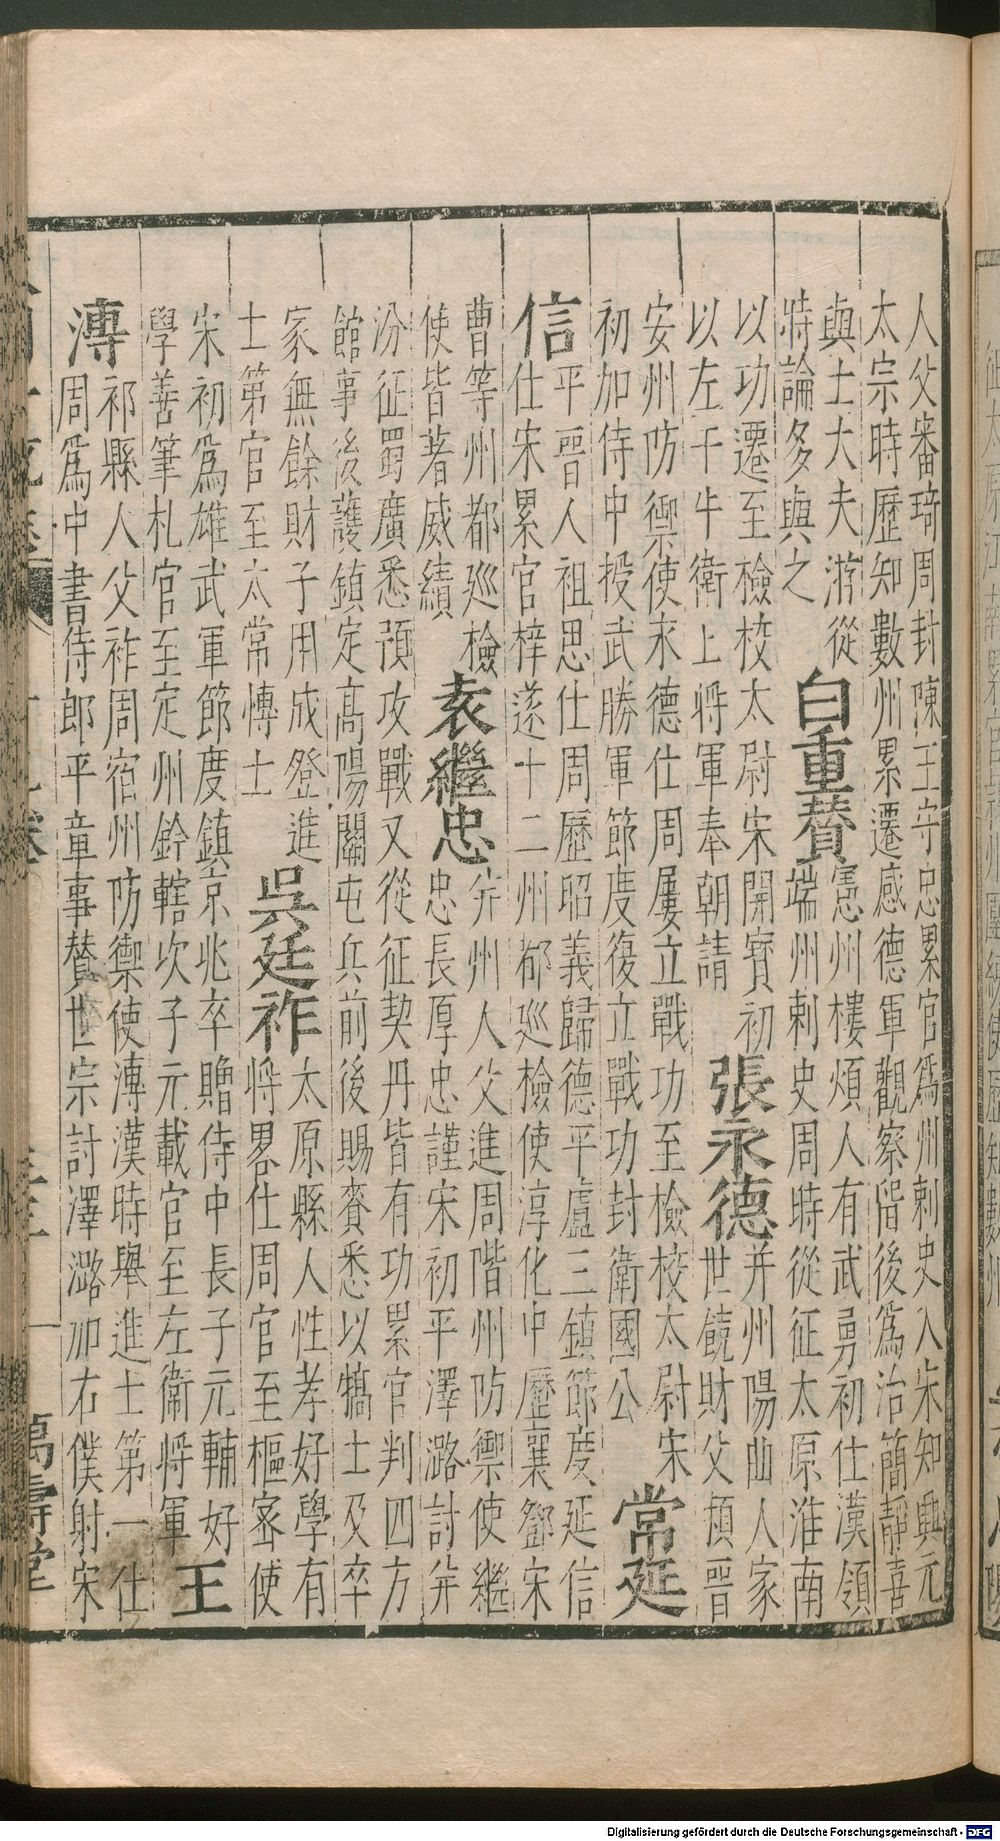 人父審琦周封陳王守忠累官爲州刺史入朱知興元
太宗時歷知數州累遷感德軍觀察留後爲治簡靜喜
與士大夫游從
特論多與之
白重贊
憲州樓煩人有武勇初仕漢領
端州刺史周時從征太原淮南
以功遷至檢校太尉宋開寶初
以左千牛衛上將軍奉朝請
張永德
并州陽曲人家
世饒財父頊晉
安州防禦使永德仕周屢立戰功至檢校太尉宋
初加侍中授武勝軍節度復立戰功封衛國公
常延
信
平晋人祖思仕周歷昭義歸德平盧三鎮節度延信
仕宋累官梓遂十二州都巡檢使淳化中歷襄鄧宋
曹等州都巡檢
使皆著威績
袁繼忠
并州人父進周階州防禦使繼
忠長厚忠謹宋初平澤潞討并
汾征蜀廣悉預攻戰又從征契丹皆有功累官判四方
館事後護鎮定高陽關屯兵前後賜賚悉以犒士及卒
家無餘財子用成登進
士第官至太常愽士
吳廷祚
太原縣人性孝好學有
將畧仕周官至樞宻使
宋初爲雄武軍節度鎮京兆卒贈侍中長子元輔好
學善筆札官至定州鈐轄次子元載官至左衛將軍
王
溥
祁縣人父祚周宿州防禦使溥漢時舉進士第一仕
周爲中書侍郎平章事賛世宗討澤潞加右僕射宋
萬壽堂
Digitalisierung gefördert durch die Deutsche Forschungsgemeinschaft - DFG